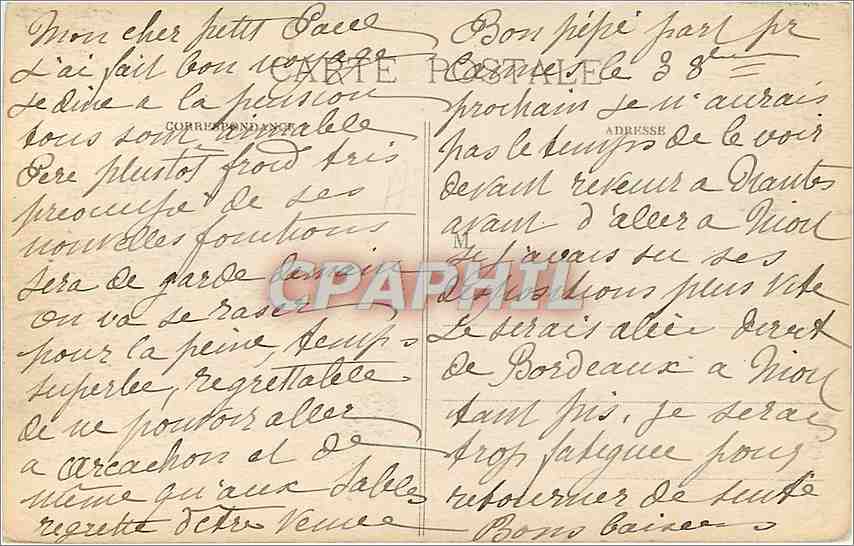 Mon cher petit Paul
J'ai fait bon voyage
je dine a la pension
tous sont aimable
Pere plustot froid tris
preocupé de ses
nouvelles fonctions
sera de garde demain
on va se raser
pour la peine, temps
superbe, regrettable
de ne pouvoir aller
a Arcachon et de
même qu'aux Sables
regrette d'etre venue
CARTE POSTALE
CORRESPONDANCE
ADRESSE
M
CPAPHIL
Bon pépé part pr
Cannes le 38
prochain je n'aurais
pas le temps de le voir
devant revenir a Nantes
avant d'aller a Niort
si j'avais su ses
dispositions plus vite
Je serais alée direct
de Bordeaux a Niort
tant pis, je serai
trop fatiguee pour
retourner de suite
Bons baisers